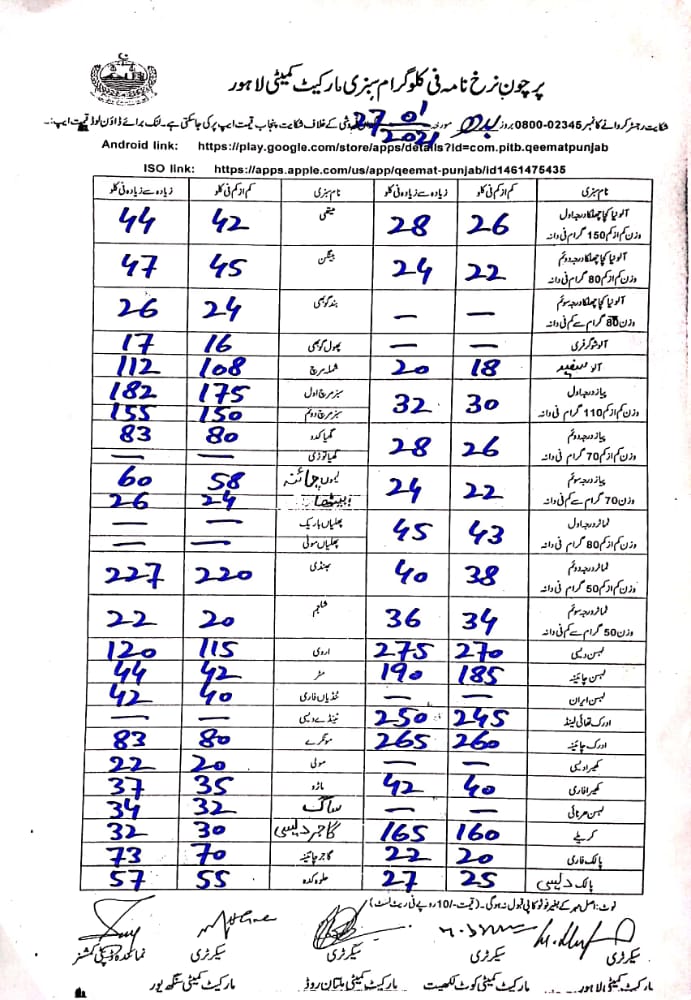 پرچون نرخ نامہ فی کلو گرام سبزی مارکیٹ کمیٹی لاہور
شکایت رجسٹر کروانے کا نمبر 02345-0800 بروز بدھ مورخہ 27-01-2021 کے خلاف شکایت پنجاب قیمت ایپ پر کی جاسکتی ہے۔ لنک برائے ڈاؤن لوڈ قیمت ایپ:۔
Android link: https://play.google.com/store/apps/details?id=com.pitb.qeematpunjab
ISO link: https://apps.apple.com/us/app/qeemat-punjab/id1461475435
نام سبزی کم از کم فی کلو زیادہ سے زیادہ فی کلو نام سبزی کم از کم فی کلو زیادہ سے زیادہ فی کلو
آلو نیا کچا چھلکا درجہ اول 26 28 میتھی 42 44
وزن کم از کم 150 گرام فی دانہ
آلو نیا کچا چھلکا درجہ دوئم 22 24 بینگن 45 47
وزن کم از کم 80 گرام فی دانہ
آلو نیا کچا چھلکا درجہ سوئم — — بند گوبھی 24 26
وزن 80 گرام سے کم فی دانہ
آلو شوگر فری — — پھول گوبھی 16 17
آلو سفید 18 20 شملہ مرچ 108 112
پیاز درجہ اول 30 32 سبز مرچ اول 175 182
وزن کم از کم 110 گرام فی دانہ سبز مرچ دوئم 150 155
پیاز درجہ دوئم 26 28 گھیا کدو 80 83
وزن کم از کم 70 گرام فی دانہ گھیا توری — —
پیاز درجہ سوئم 22 24 لیموں چائنہ 58 60
وزن 70 گرام سے کم فی دانہ پیٹھا 24 26
ٹماٹر درجہ اول 43 45 پھلیاں باریک — —
وزن کم از کم 80 گرام فی دانہ پھلیاں موٹی — —
ٹماٹر درجہ دوئم 38 40 بھنڈی 220 227
وزن کم از کم 50 گرام فی دانہ
ٹماٹر درجہ سوئم 34 36 شلجم 20 22
وزن 50 گرام سے کم فی دانہ
لہسن دیسی 270 275 اروی 115 120
لہسن چائینہ 185 190 مٹر 42 44
لہسن ایران — — ٹینڈیاں فارمی 40 42
ادرک تھائی لینڈ 245 250 ٹینڈے دیسی — —
ادرک چائینہ 260 265 مونگرے 80 83
کھیرا دیسی — — مولی 20 22
کھیرا فارمی 40 42 35 37
لہسن ہرنائی — — ساگ 32 34
کریلے 160 165 گاجر دیسی 30 32
پالک فارمی 20 22 گاجر چائینہ 70 73
پالک دیسی 25 27 حلوہ کدو 55 57
نوٹ: اصل مہر کے بغیر فوٹو کاپی قبول نہ ہوگی۔ (قیمت -/10 روپے فی ریٹ لسٹ)
سیکرٹری سیکرٹری سیکرٹری سیکرٹری نمائندہ ڈپٹی کمشنر
مارکیٹ کمیٹی لاہور مارکیٹ کمیٹی کوٹ لکھپت مارکیٹ کمیٹی ملتان روڈ مارکیٹ کمیٹی سنگھ پور